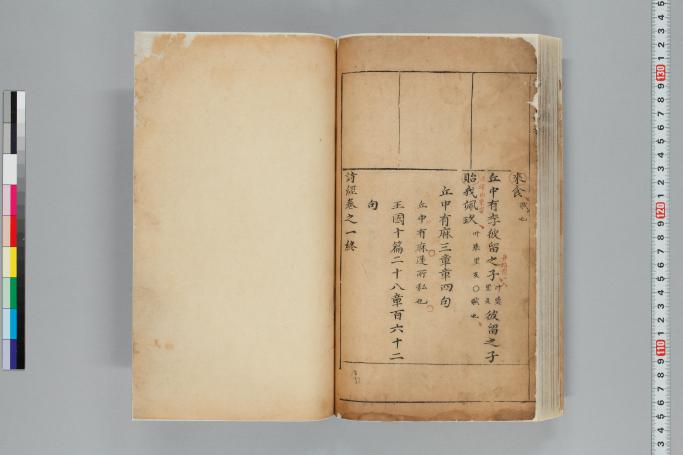 來食 賦也
丘中有李彼留之子 叶奬里反 彼留之子
貽我佩玖 叶舉里反○賦也
丘中有麻三章章四句
丘中有麻達所私也
王國十篇二十八章百六十二
句
詩經卷之一終
130
120
110